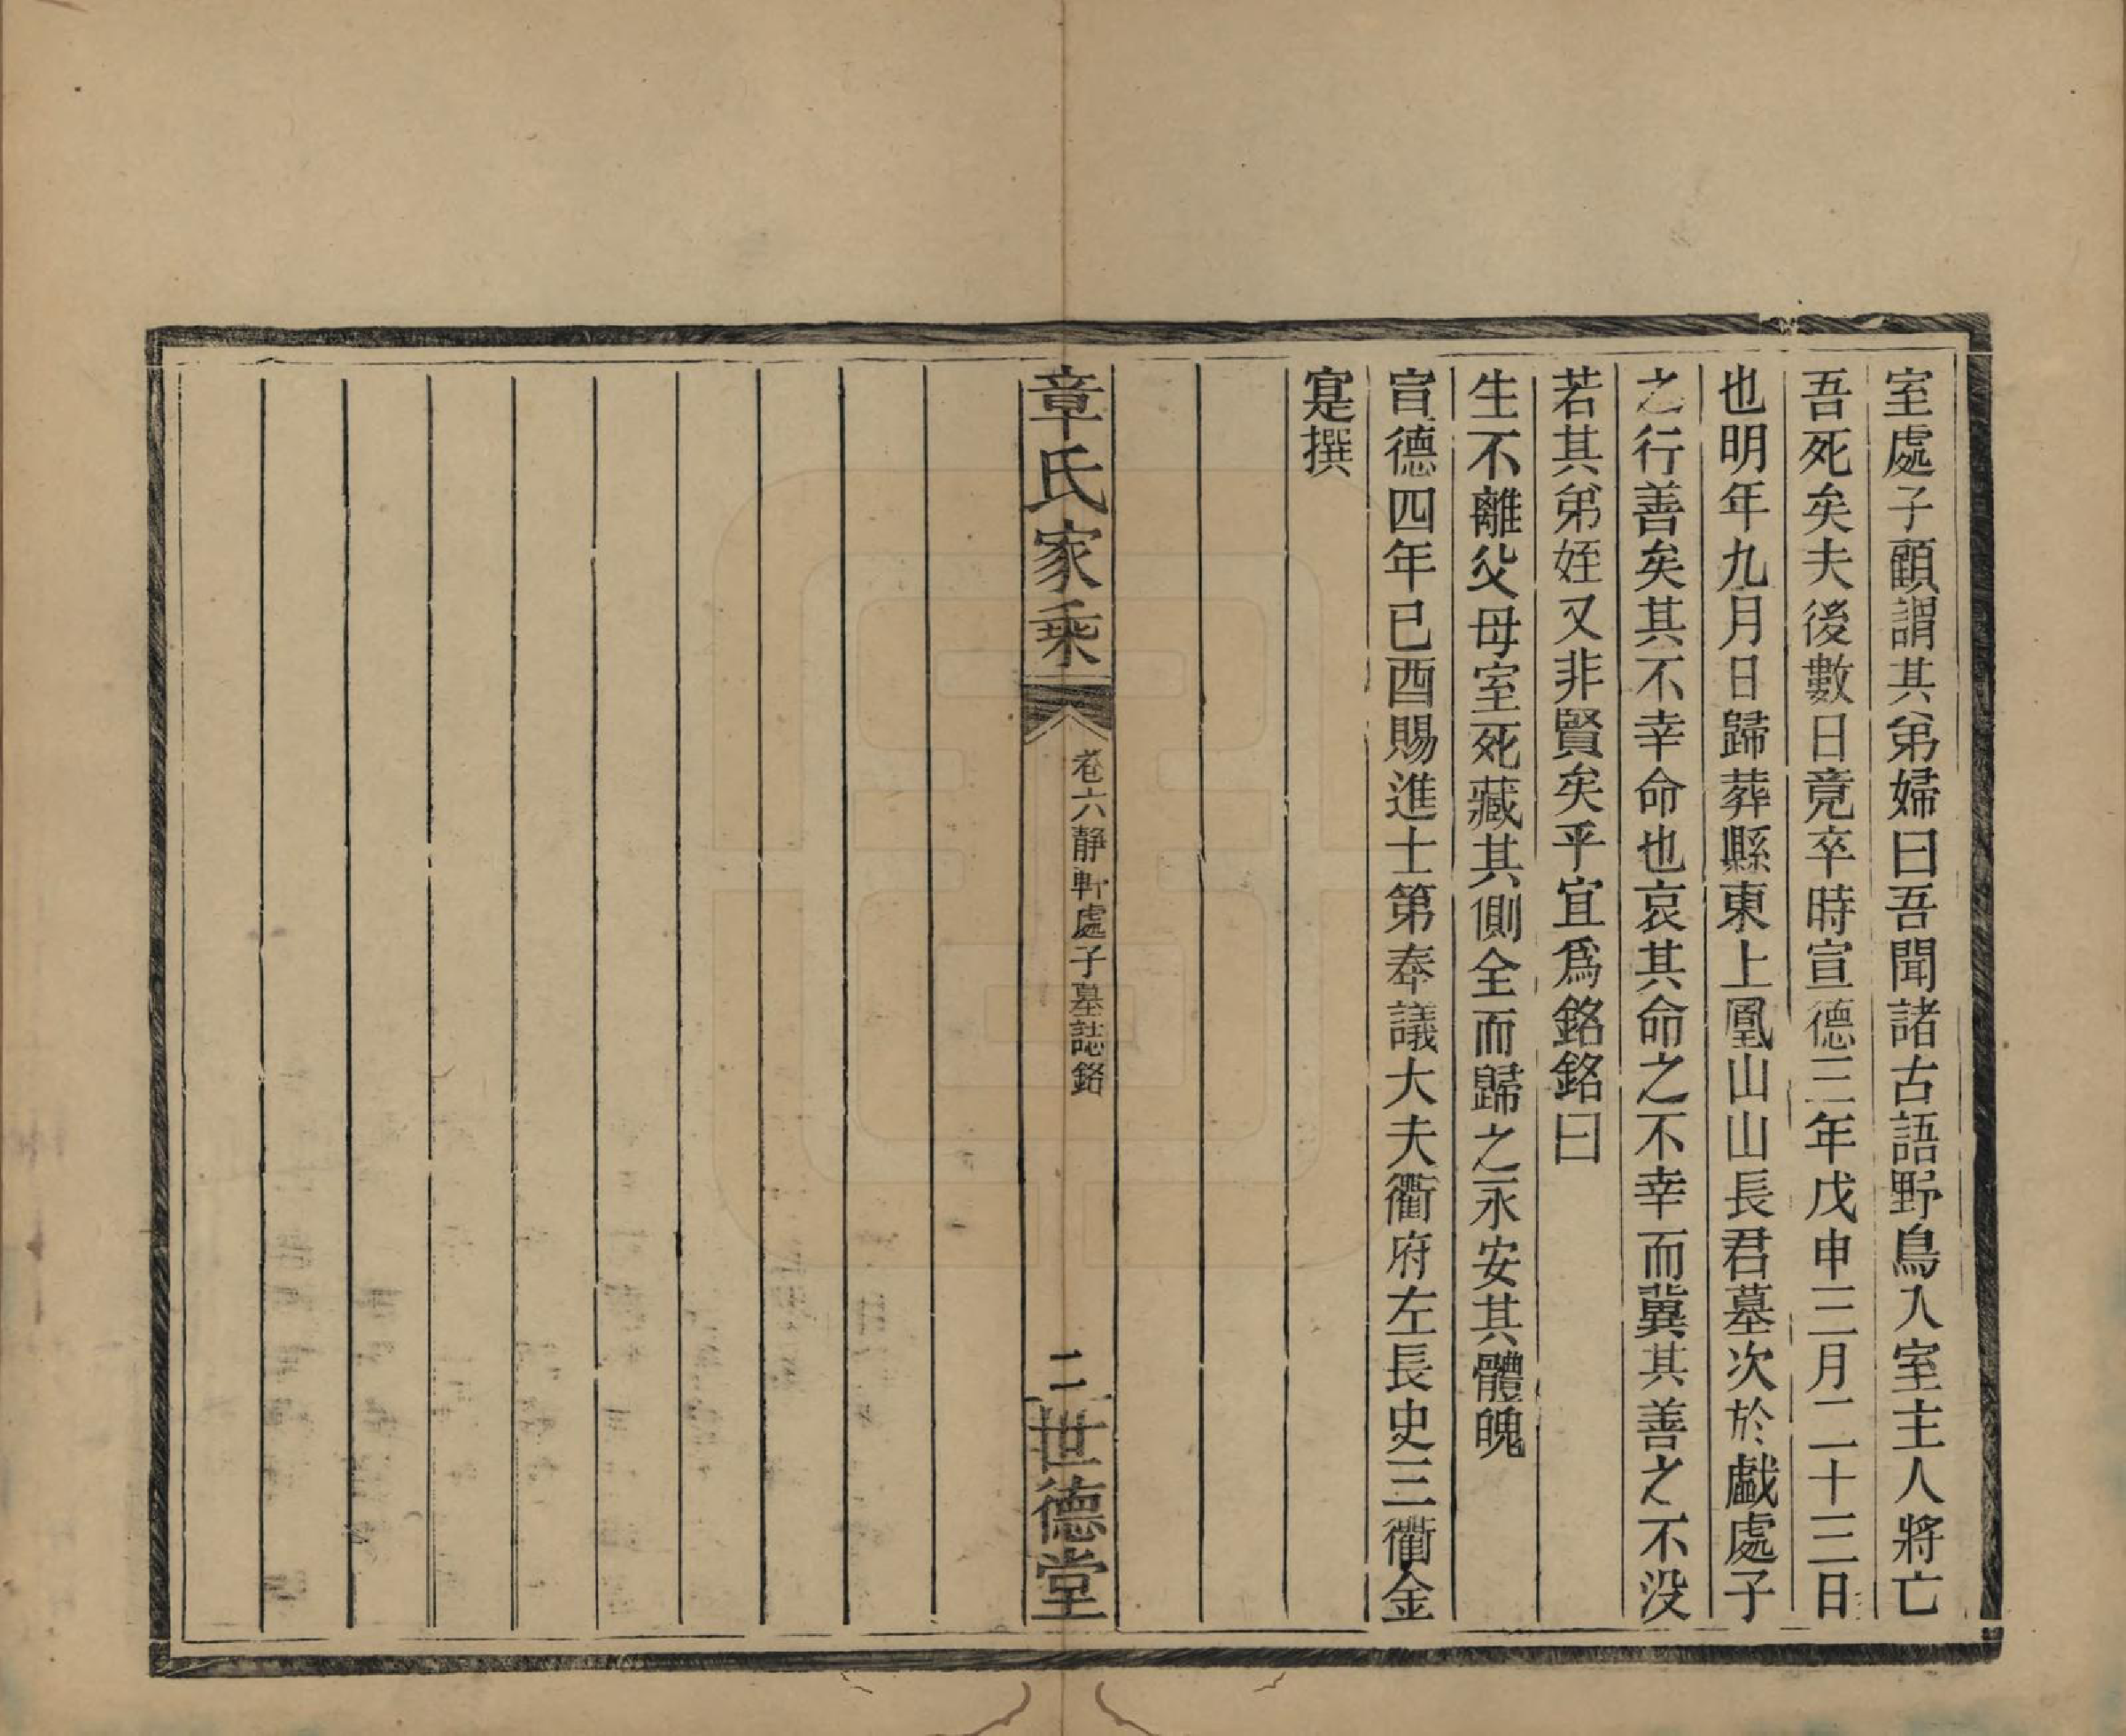 室處子顧謂其弟婦曰吾聞諸古語野鳥入室主人將亡
吾死矣夫後數日竟卒時宣德三年戊申三月二十三日
也明年九月日歸葬縣東上鳳山山長君墓次於戲處子
之行善矣其不幸命也哀其命之不幸而冀其善之不没
若其弟姪又非賢矣乎宜爲銘銘曰
生不離父母室死藏其側全而歸之永安其體魄
宣德四年已酉賜進士第奉議大夫衢府左長史三衢金
寔撰
章氏家乘
卷六靜軒處子墓誌銘
二
世德堂